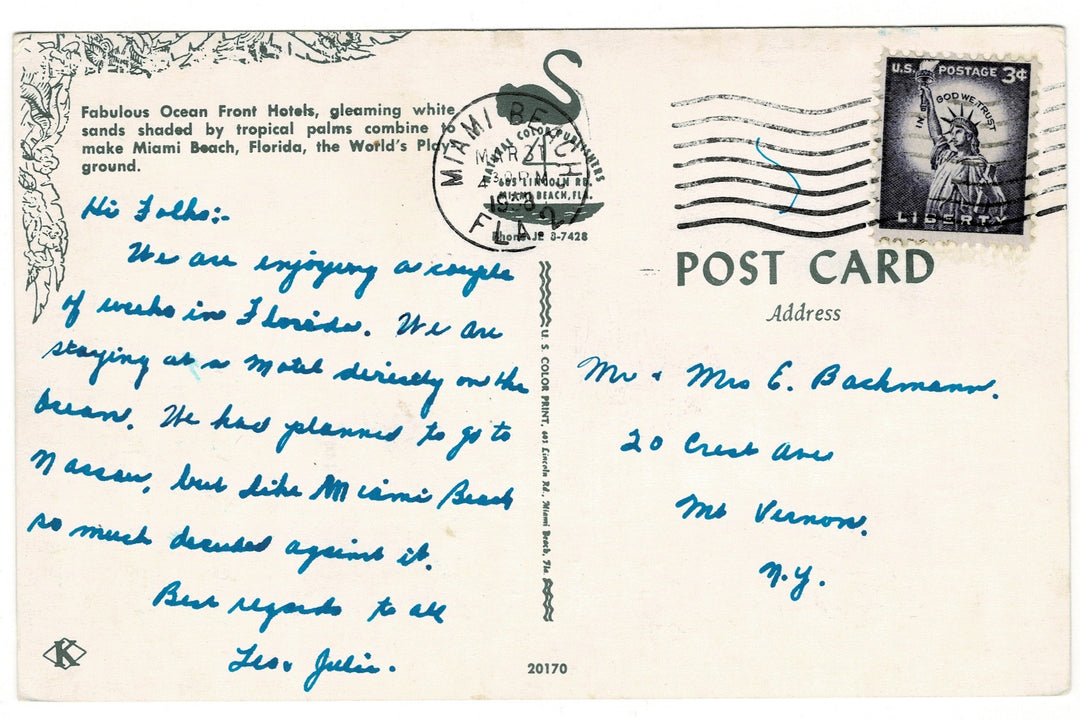 Fabulous Ocean Front Hotels, gleaming white
sands shaded by tropical palms combine to
make Miami Beach, Florida, the World's Play-
ground.
Hi Folks:-
We are enjoying a couple
of weeks in Florida. We are
staying at a Motel directly on the
Ocean. We had planned to go to
Nassau, but like Miami Beach
so much decided against it.
Best regards to all
Leo & Julie.
K
MIAMI BEACH
MAR 21
PM
1958
FLA
2
NATURAL COLOR PUBLISHERS
605 LINCOLN RD.
MIAMI BEACH, FLA.
Phone JE 8-7428
U. S. COLOR PRINT, 605 Lincoln Rd., Miami Beach, Fla
20170
U.S. POSTAGE 3¢
IN GOD WE TRUST
LIBERTY
POST CARD
Address
Mr & Mrs E. Bachmann.
20 Crest Ave
Mt Vernon.
N.Y.